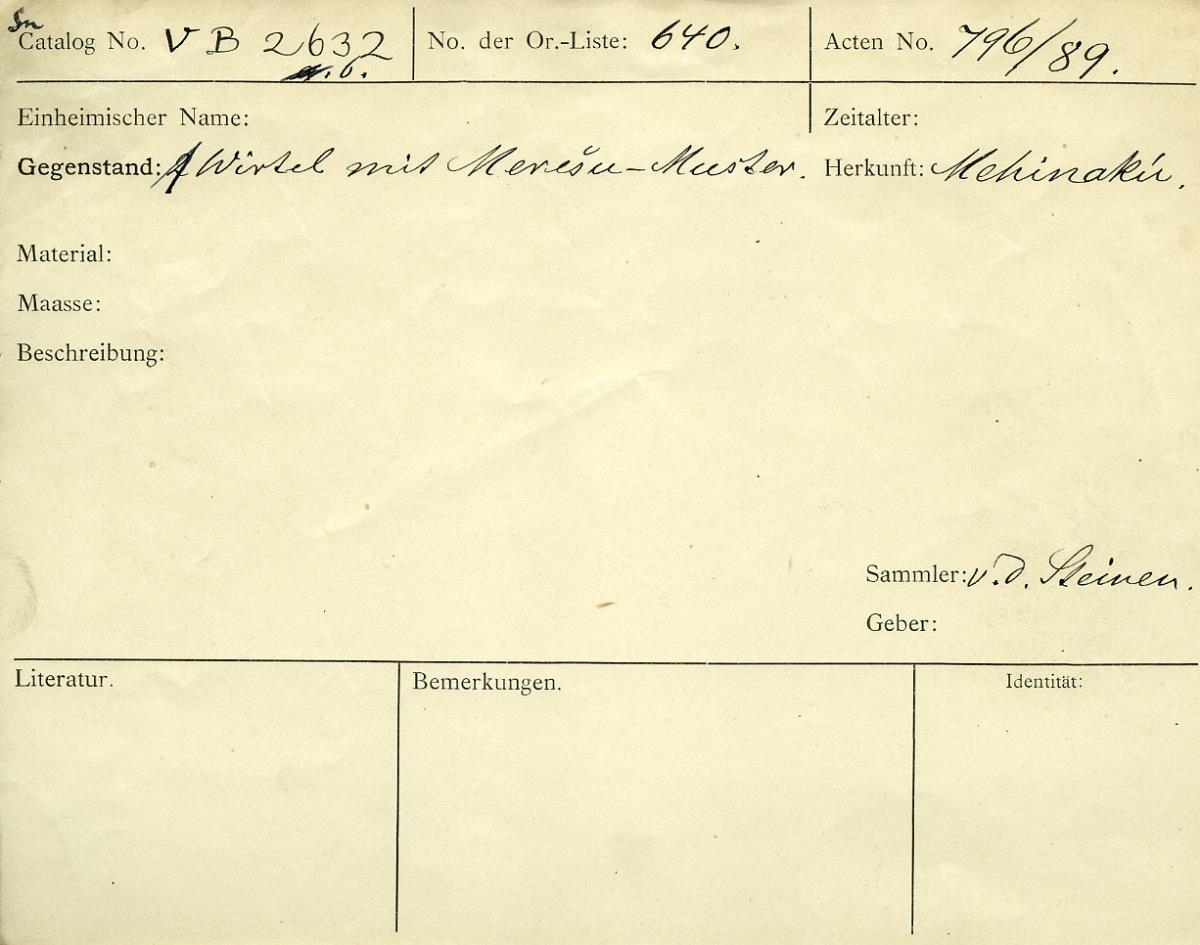 Sn
Catalog No. V B 2632 No. der Or.-Liste: 640. Acten No. 796/89.
a.b.
Einheimischer Name: Zeitalter:
Gegenstand: Wirtel mit Merešu-Muster. Herkunft: Mehinakú.
Material:
Maasse:
Beschreibung:
Sammler: v. d. Steinen.
Geber:
Literatur. Bemerkungen. Identität: